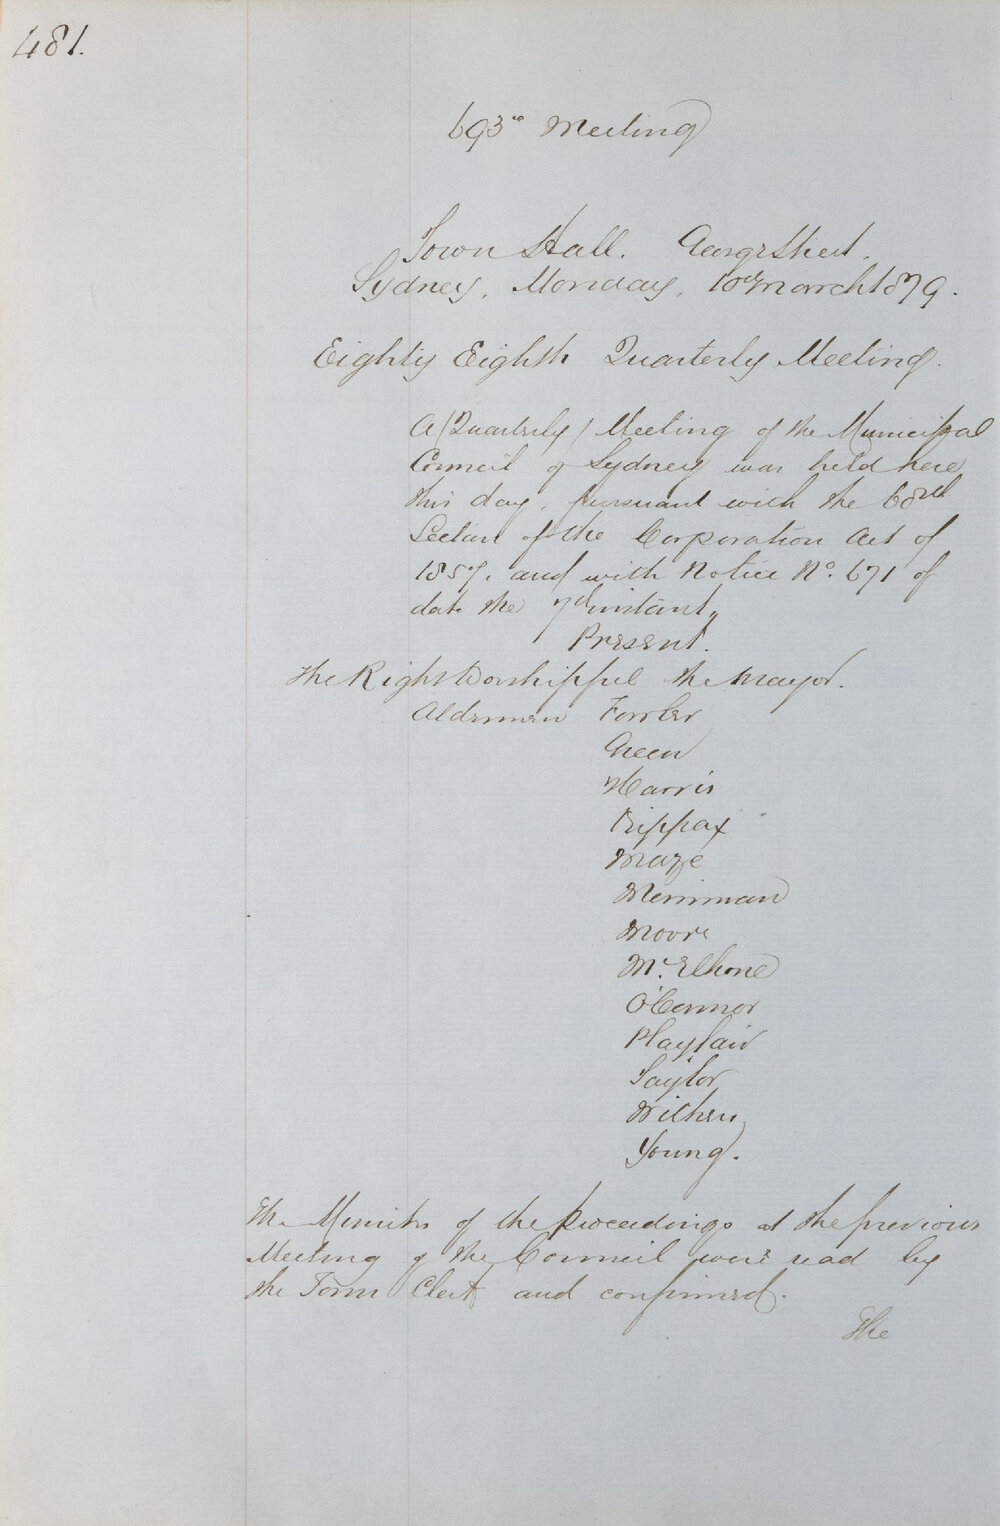 481.
693rd Meeting
Town Hall. George Street.
Sydney, Monday, 10th March 1879.
Eighty Eighth Quarterly Meeting.
A (Quarterly) Meeting of the Municipal
Council of Sydney was held here
this day, pursuant with the 68th
Section of the Corporation Act of
1857, and with Notice No. 671 of
date the 7th instant,,
Present.
The Right Worshipful the Mayor.
Aldermen Fowler
Green
Harris
Kippax
Maze
Merriman
Moore
Mc.Elhone
O'Connor
Playfair
Taylor
Withers
Young.
The Minutes of the Proceedings at the previous
Meeting of the Council were read by
the Town Clerk and confirmed.
The